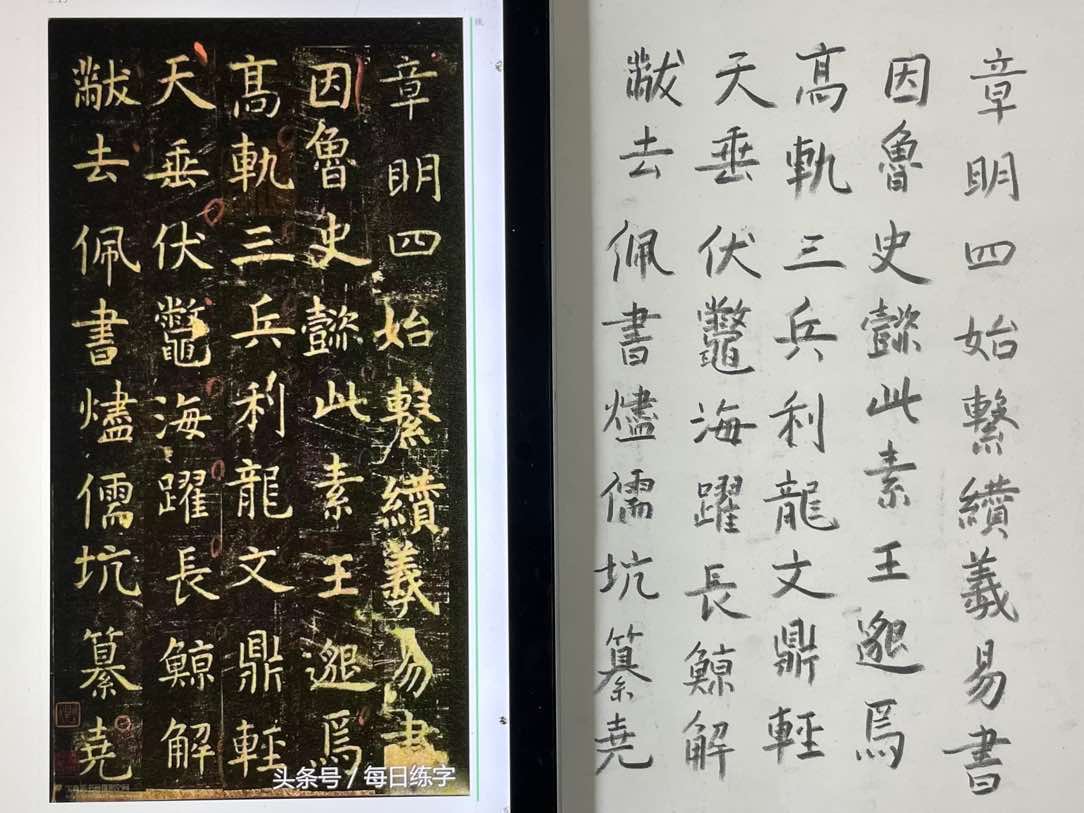 章明四始繫纘羲易書
因魯史懿此素王邈焉
髙軌三兵利龍文鼎輕
天垂伏鼈海躍長鯨解
黻去佩書燼儒坑纂堯
头条号 / 每日练字
章明四始繫纘羲易書
因魯史懿此素王邈焉
髙軌三兵利龍文鼎輕
天垂伏鼈海躍長鯨解
黻去佩書燼儒坑纂堯